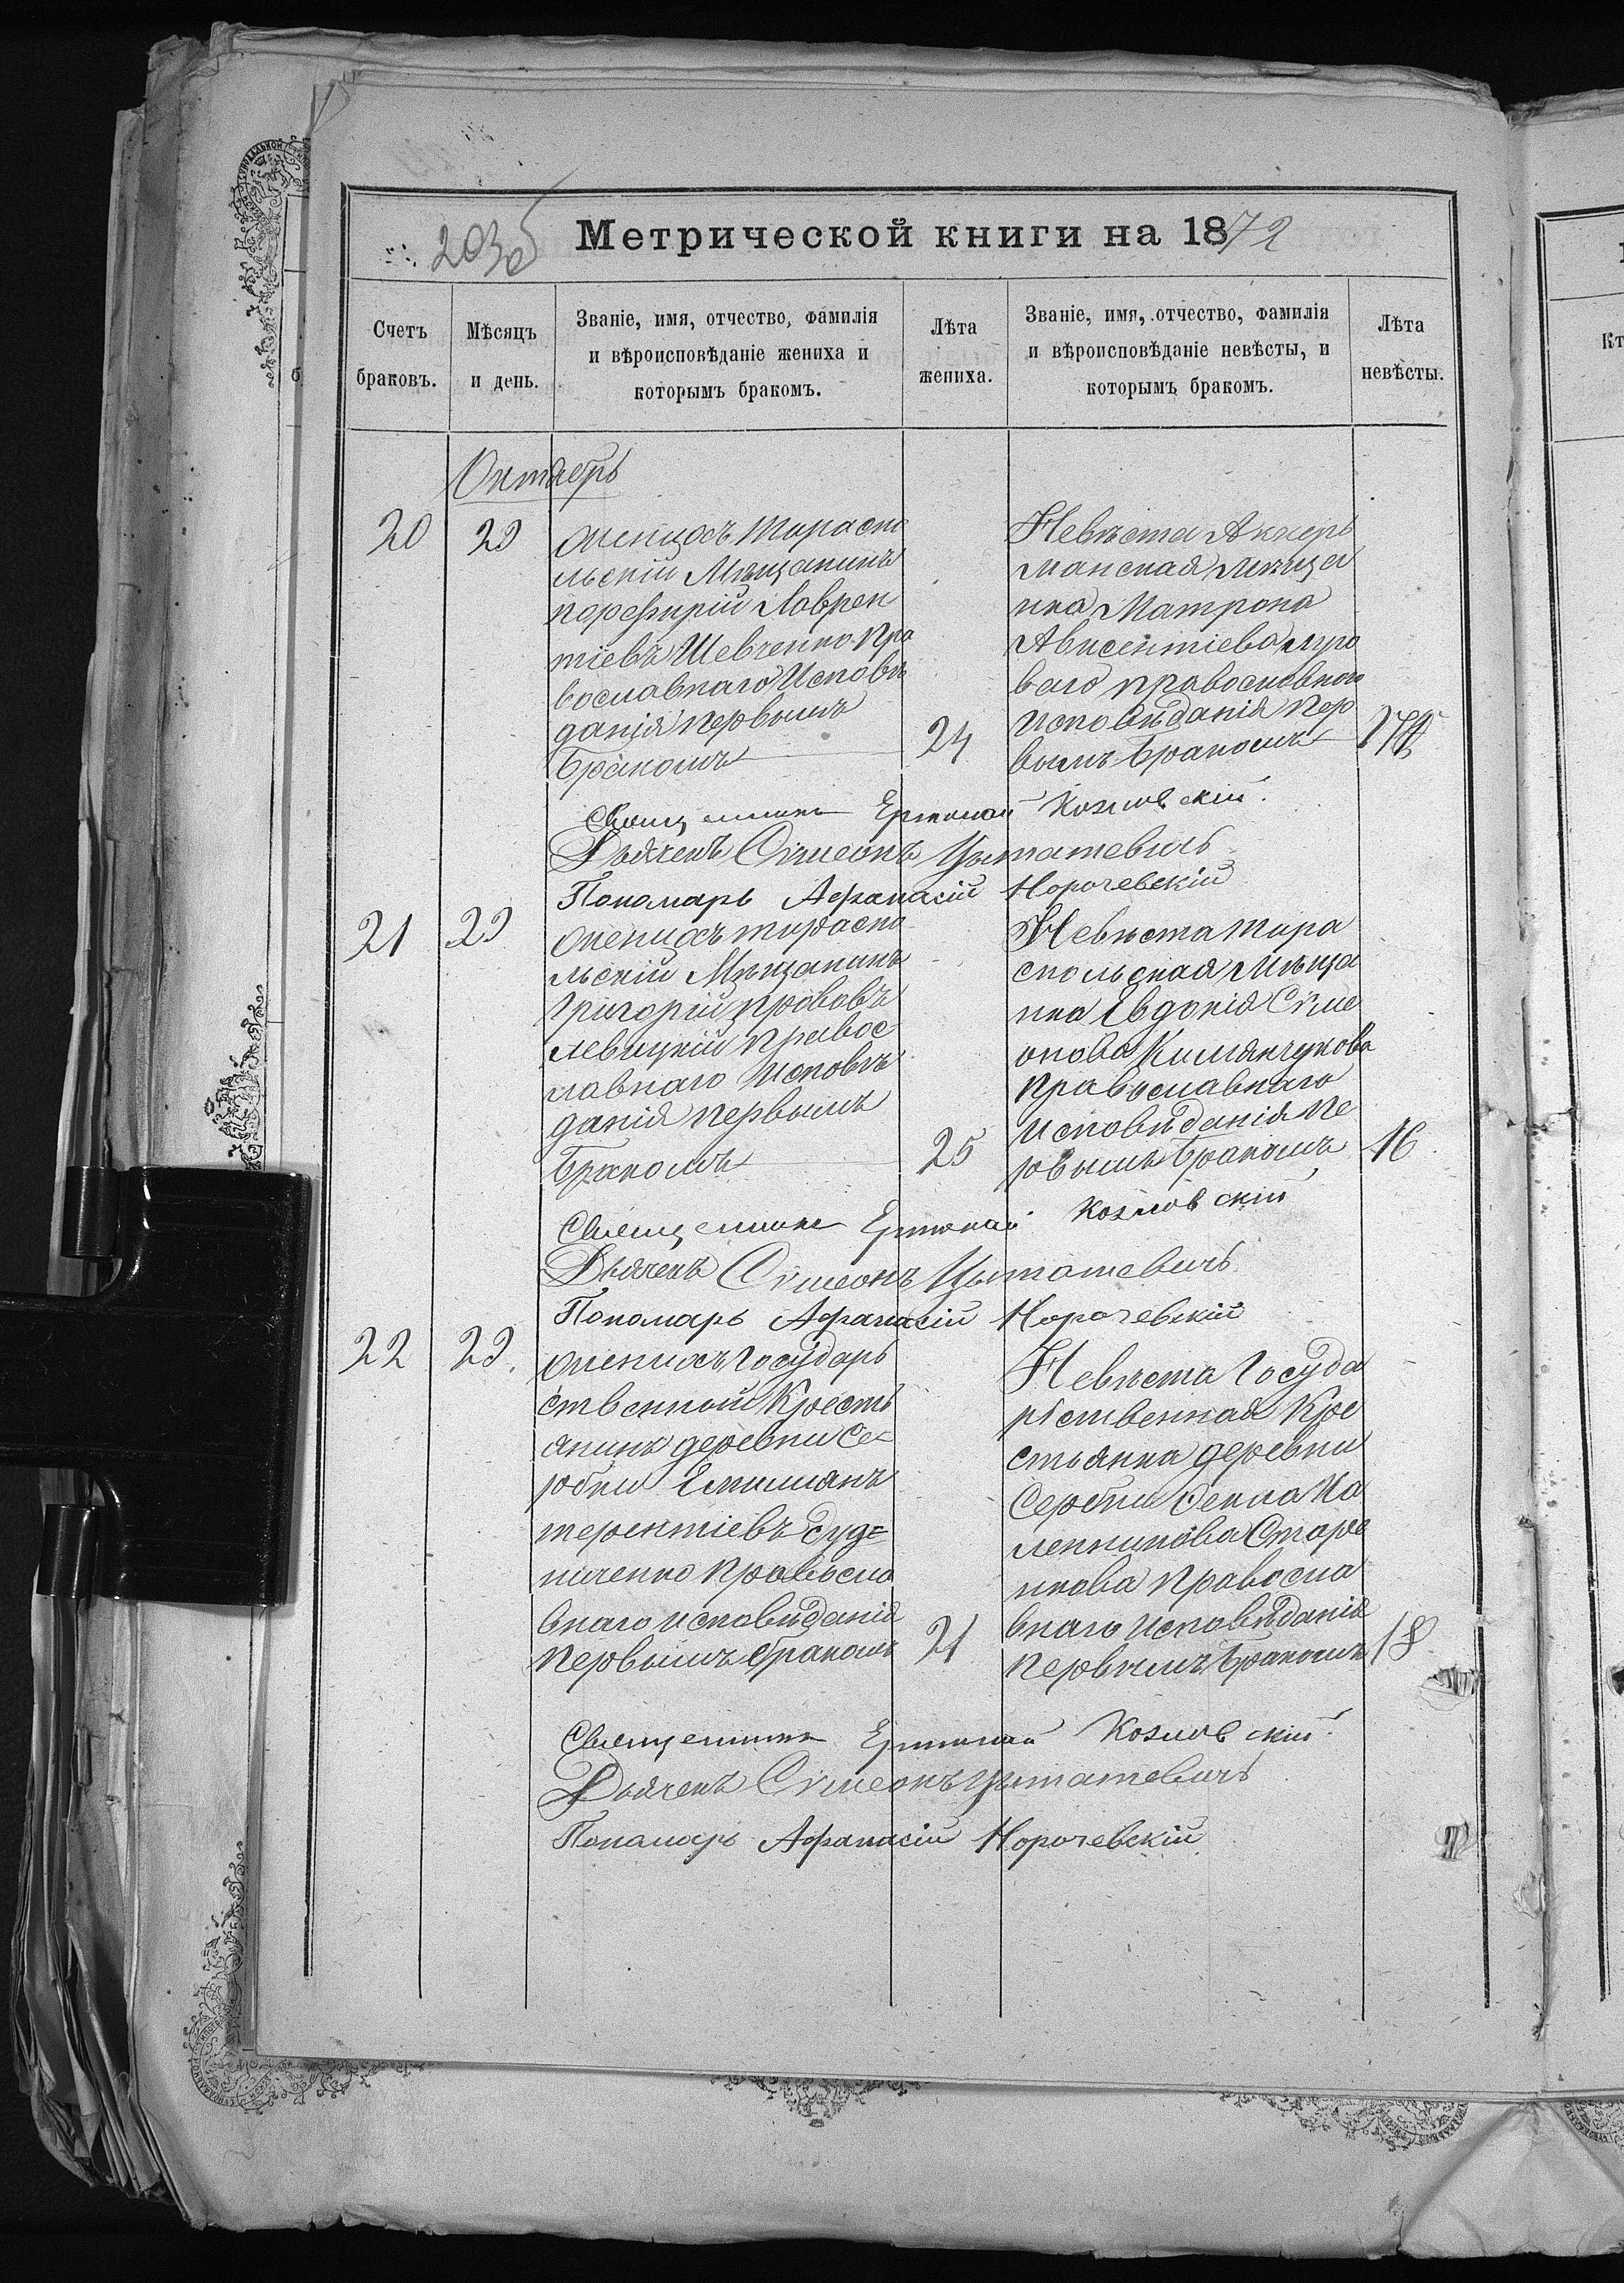 203об
Метрической книги на 1872
Счетъ браковъ.
Мѣсяцъ и день.
Званіе, имя, отчество, фамилія
и вѣроисповѣданіе жениха и
которымъ бракомъ.
Лѣта жениха.
Званіе, имя, отчество, фамилія
и вѣроисповѣданіе невѣсты, и
которымъ бракомъ.
Лѣта невѣсты.
Октябрь
20
29
Женихъ Тираспо
льскій Мѣщанинъ
Порфирій Лаврен
тіевъ Шевченко Пра
вославнаго Исповѣ
данія первымъ
бракомъ
24
Невѣста Аккер
манская мѣща
нка Матрона
Авксентіева
ваго православного
исповѣданія пер
вымъ бракомъ
17
Священникъ Козловскій.
Дьячекъ Сѵмеонъ
Пономарь Афанасій Норочевскій
21
29
Женихъ тираспо
льскій Мѣщанинъ
Григорій
Левицкій правос
лавнаго исповѣ
данія первымъ
бракомъ
25
Невѣста тира
спольская мѣща
нка Евдокія Сѵме
онова
православнаго
исповѣданія пе
рвымъ бракомъ
16
Священникъ Козловскій
Дьячекъ Сѵмеонъ
Пономарь Афанасій Норочевскій
22
29.
Женихъ Государ
ственной Кресть
янинъ деревни Се=
рбки Емилианъ
терентіевъ Дуд=
ниченко правосла
внаго исповѣданія
первымъ бракомъ
21
Невѣста Госуда
рственная Кре
стьянка деревни
Сербки Ка
ленникова
нкова правосла
внаго исповѣданія
первымъ бракомъ
18
Священникъ Козловскій.
Дьячекъ Сѵмеонъ
Пономарь Афанасій Норочевскій